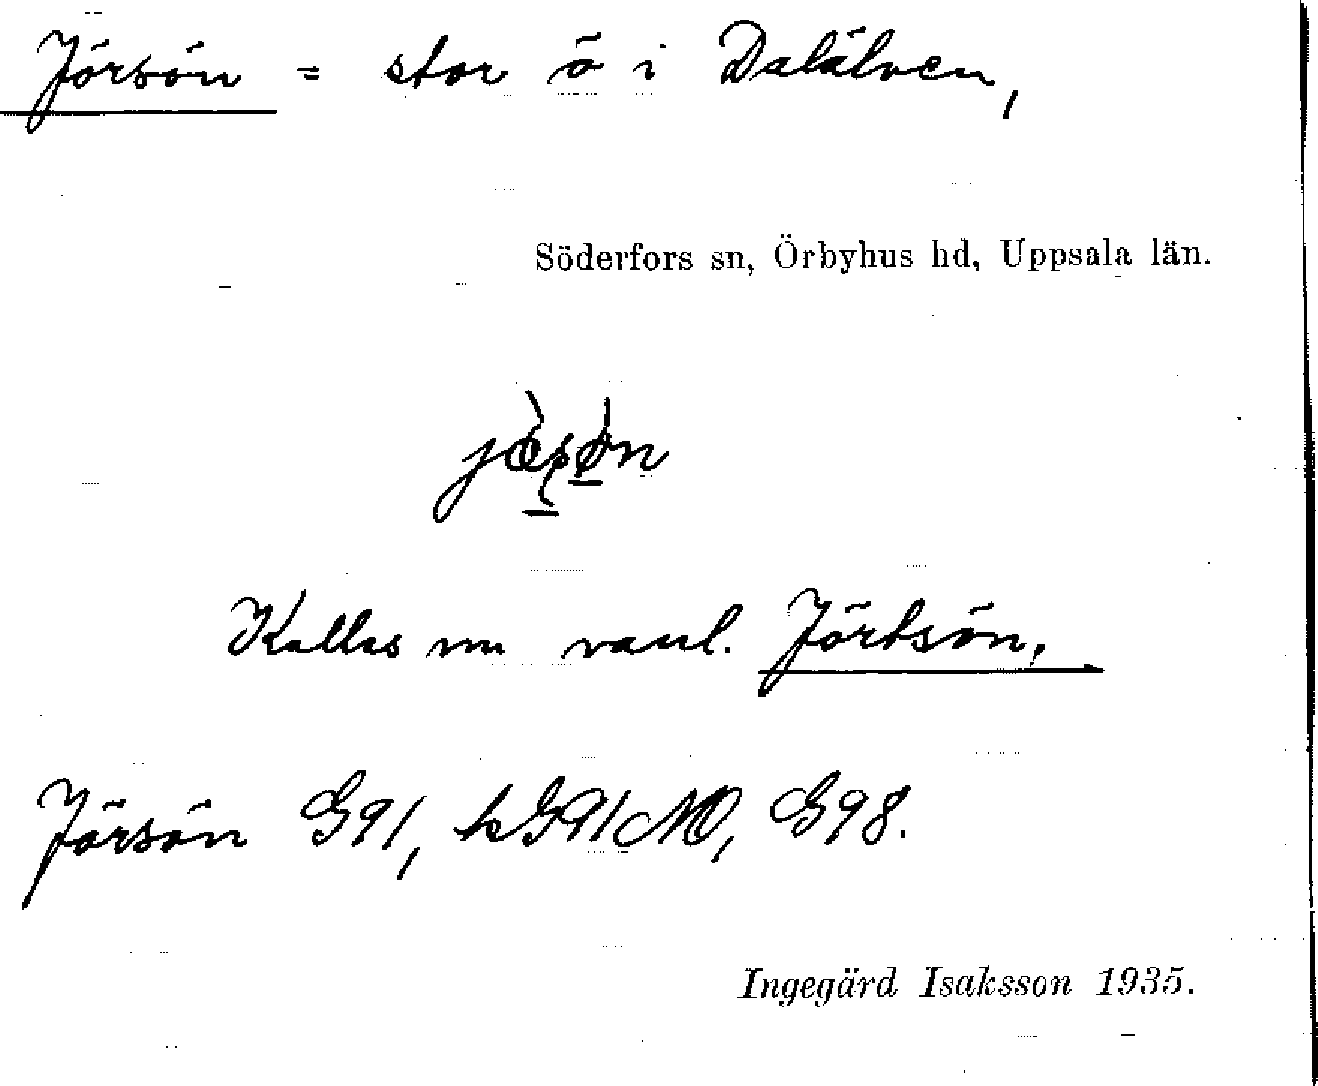 Jörsön = stor ö i Dalälven,
Söderfors sn, Örbyhus hd, Uppsala län.
Kallas nu vanl. Jörtsön.
Jörsön G91, kG91NO, G98.
Ingegärd Isaksson 1935.